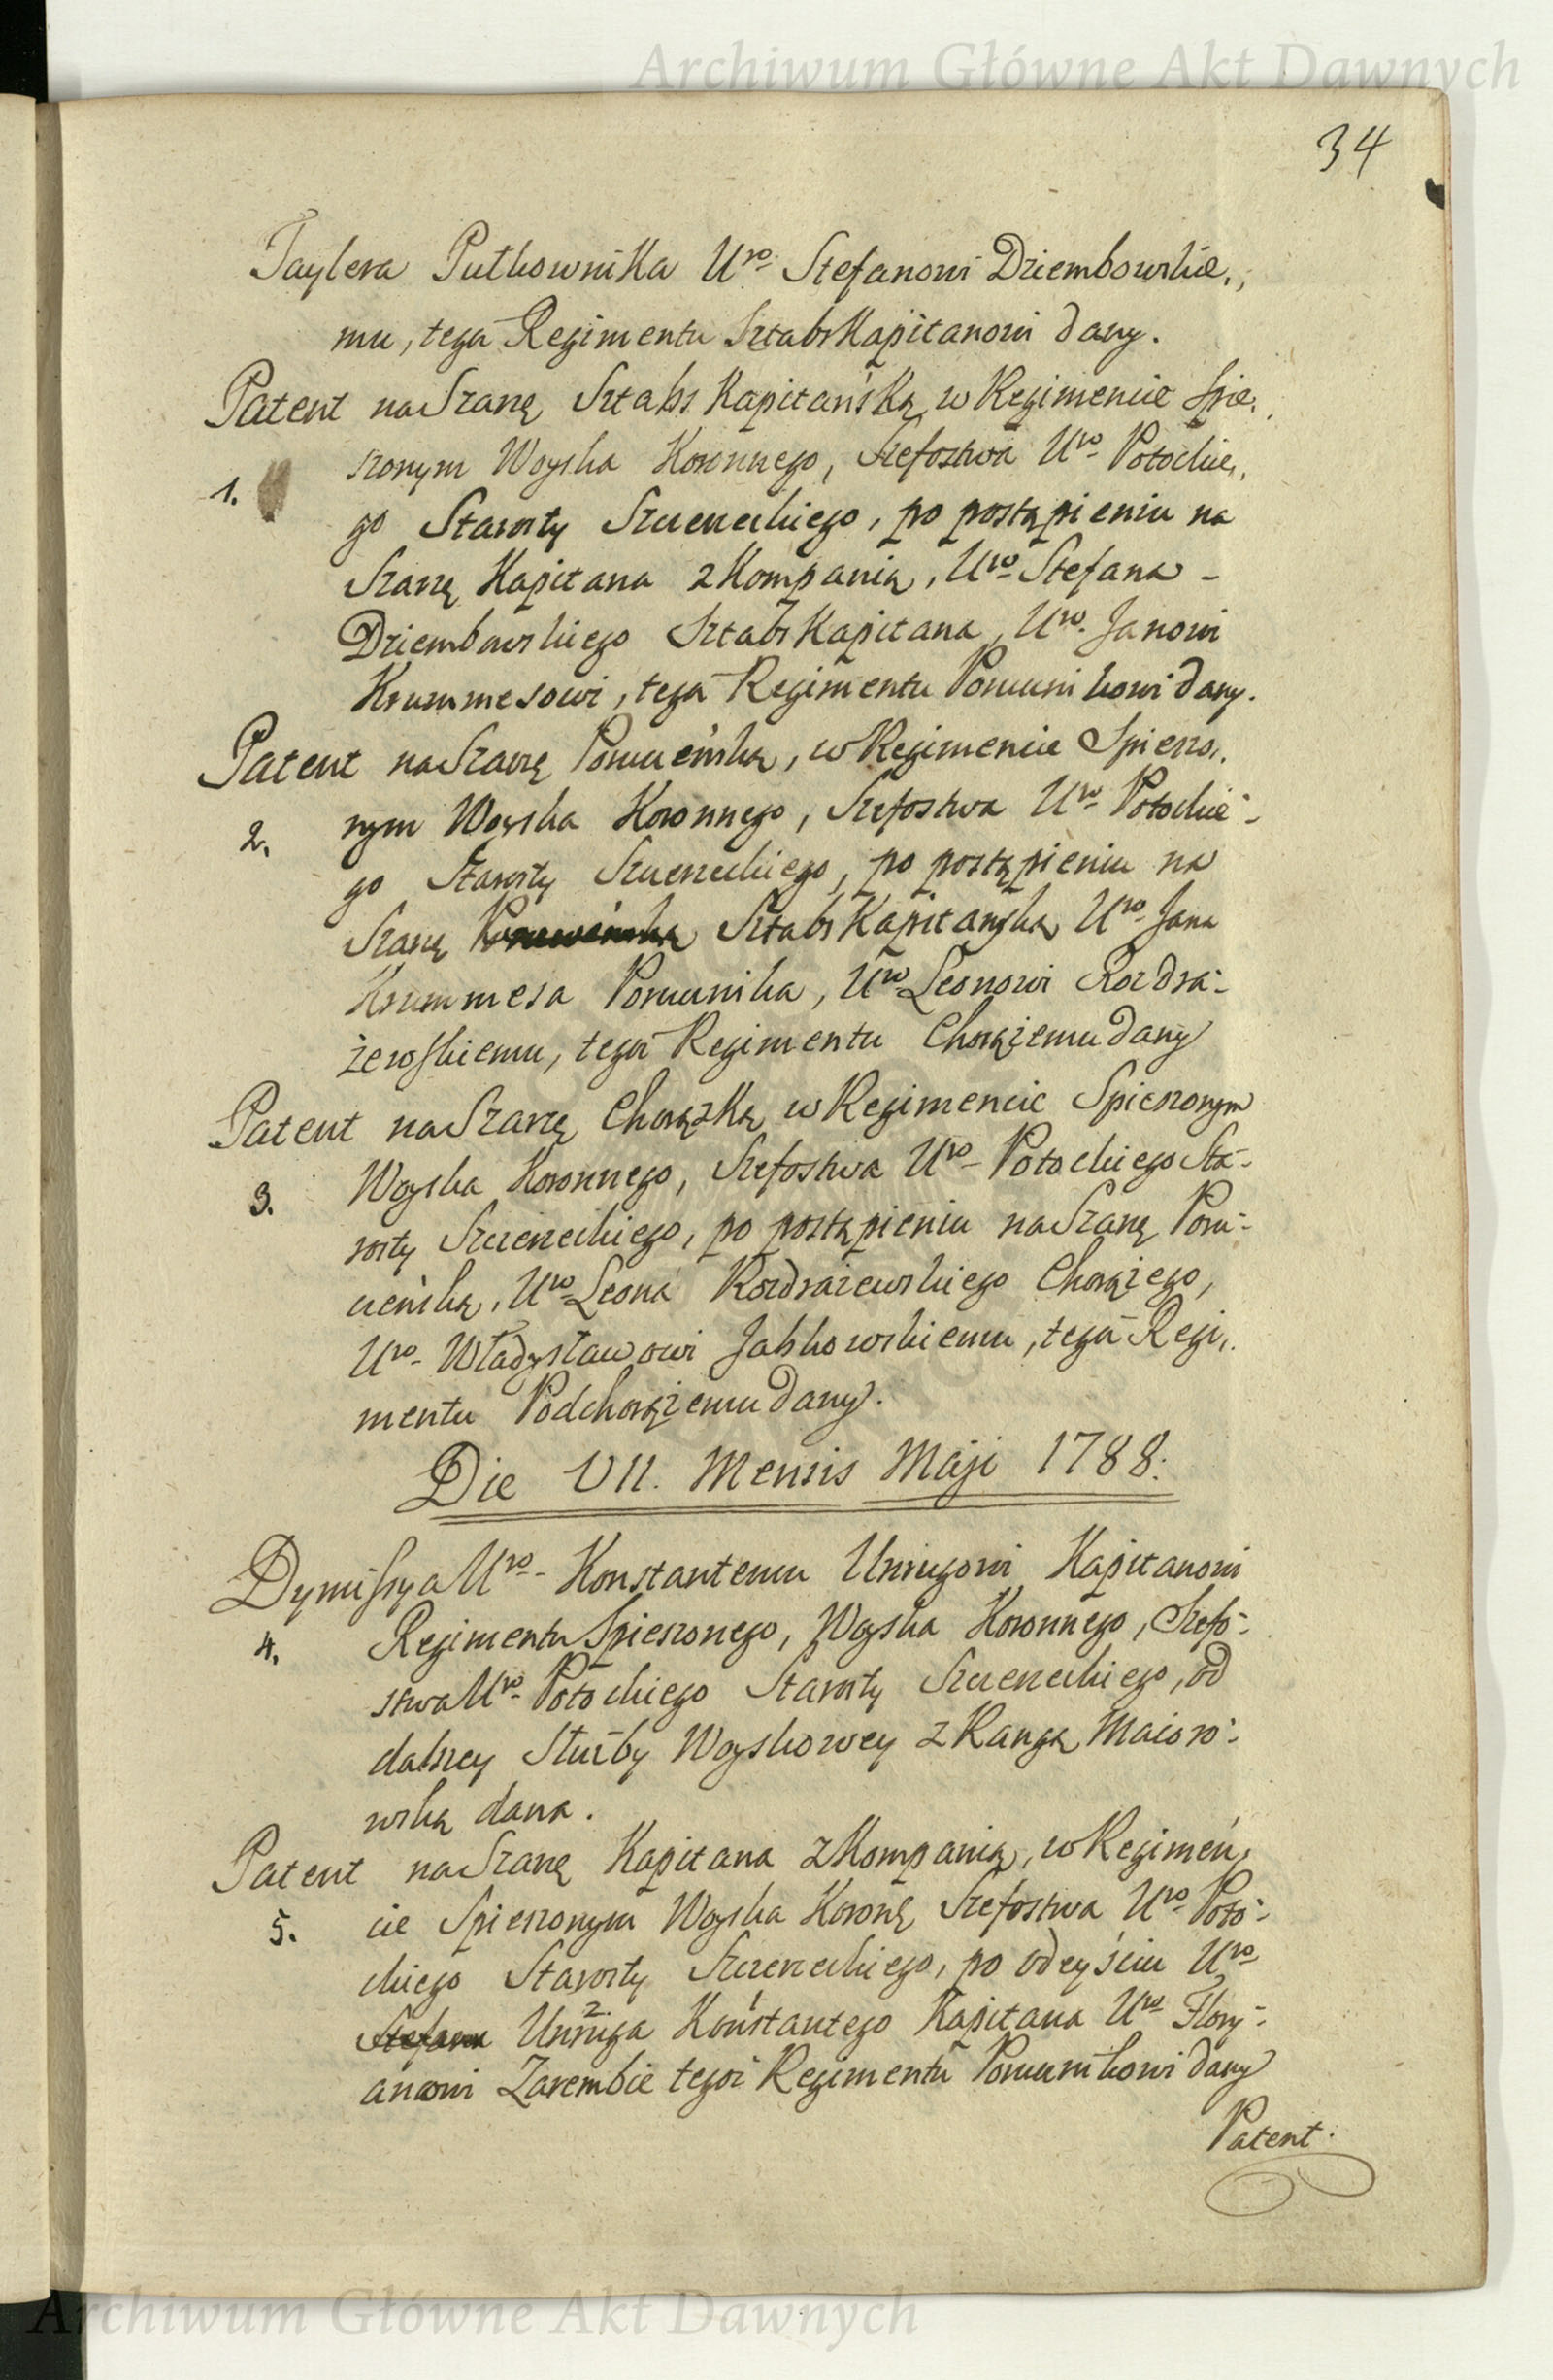 Archiwum Główne Akt Dawnych
34
Taylera Pułkownika Uro- Stefanowi Dziembowskie,,
mu, tegoż Regimentu Sztabs Kapitanowi dany.
Patent na Szarżę Sztabs Kapitańską w Regimencie Spie,,
szonym Woyska Koronnego, Szefostwa Uro- Potockie,,
1.
go Starosty Szczerzeckiego, po postąpieniu na
Szarżę Kapitana z Kompanią, Uro- Stefana -
Dziembowskiego Sztabs Kapitana, Uro- Janowi
Krummesowi, tegoż Regimentu Porucznikowi dany.
Patent na Szarżę Porucznińską, w Regimencie Spieszo,,
2.
nym Woyska Koronnego, Szefostwa Uro- Potockie-
go Starosty Szczerzeckiego, po postąpieniu na
Szarżę Sztabs Kapitańską Uro- Jana
Krummesa Porucznika, Uro- Leonowi Rozdra-
żewskiemu, tegoż Regimentu Chorążemu dany
Patent na Szarżę Chorążką w Regimencie Spieszonym
3.
Woyska Koronnego, Szefostwa Uro- Potockiego Sta-
rosty Szczerzeckiego, po postąpieniu na Szarżę Poru-
czeńską, Uro- Leona Rozdrażewskiego Chorążego,
Uro- Władysławowi Jabkowskiemu, tegoż Regi,,
mentu Podchorążemu dany.
Die VII. Mensis Maji 1788.
Dymissya Uro- Konstantemu Unrugowi Kapitanowi
4.
Regimentu Spieszonego, Woyska Koronnego, Szefo-
stwa Uro- Potockiego Starosty Szczerzeckiego, od
dalszey Służby Woyskowey z Rangą Maioro-
wską dana.
Patent na Szarżę Kapitana z Kompanią, w Regimen,,
5.
cie Spieszonym Woyska Koronę Szefostwa Uro- Poto-
ckiego Starosty Szczerzeckiego, po odeyściu Uro-
Stefana Unruga Konstantego Kapitana Uro- Flory-
anowi Zarembie tegoż Regimentu Porucznikowi dany
Patent.
Archiwum Główne Akt Dawnych